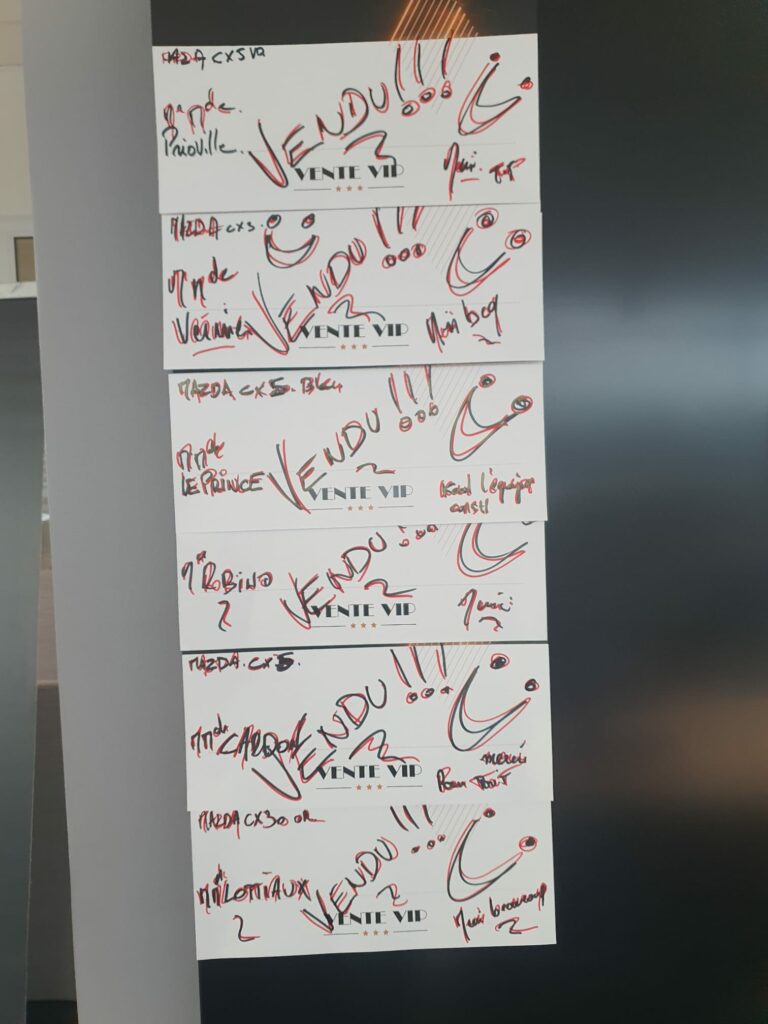 MAZDA CX5
Mr Mde
Prioville
VENDU!!!
VENTE VIP
Merci
MAZDA CX3
Mr Mde
VENDU!!!
VENTE VIP
Merci bcp
MAZDA CX5.
Mr Mde
LEPRINCE
VENDU!!!
VENTE VIP
l'équipe
Mr ROBINO
VENDU!!!
VENTE VIP
Merci
MAZDA CX5.
Mr Mde
VENDU!!!
VENTE VIP
merci
Pour TOUT
MAZDA CX30
Mr LOTTIAUX
VENDU!!!
VENTE VIP
Merci beaucoup